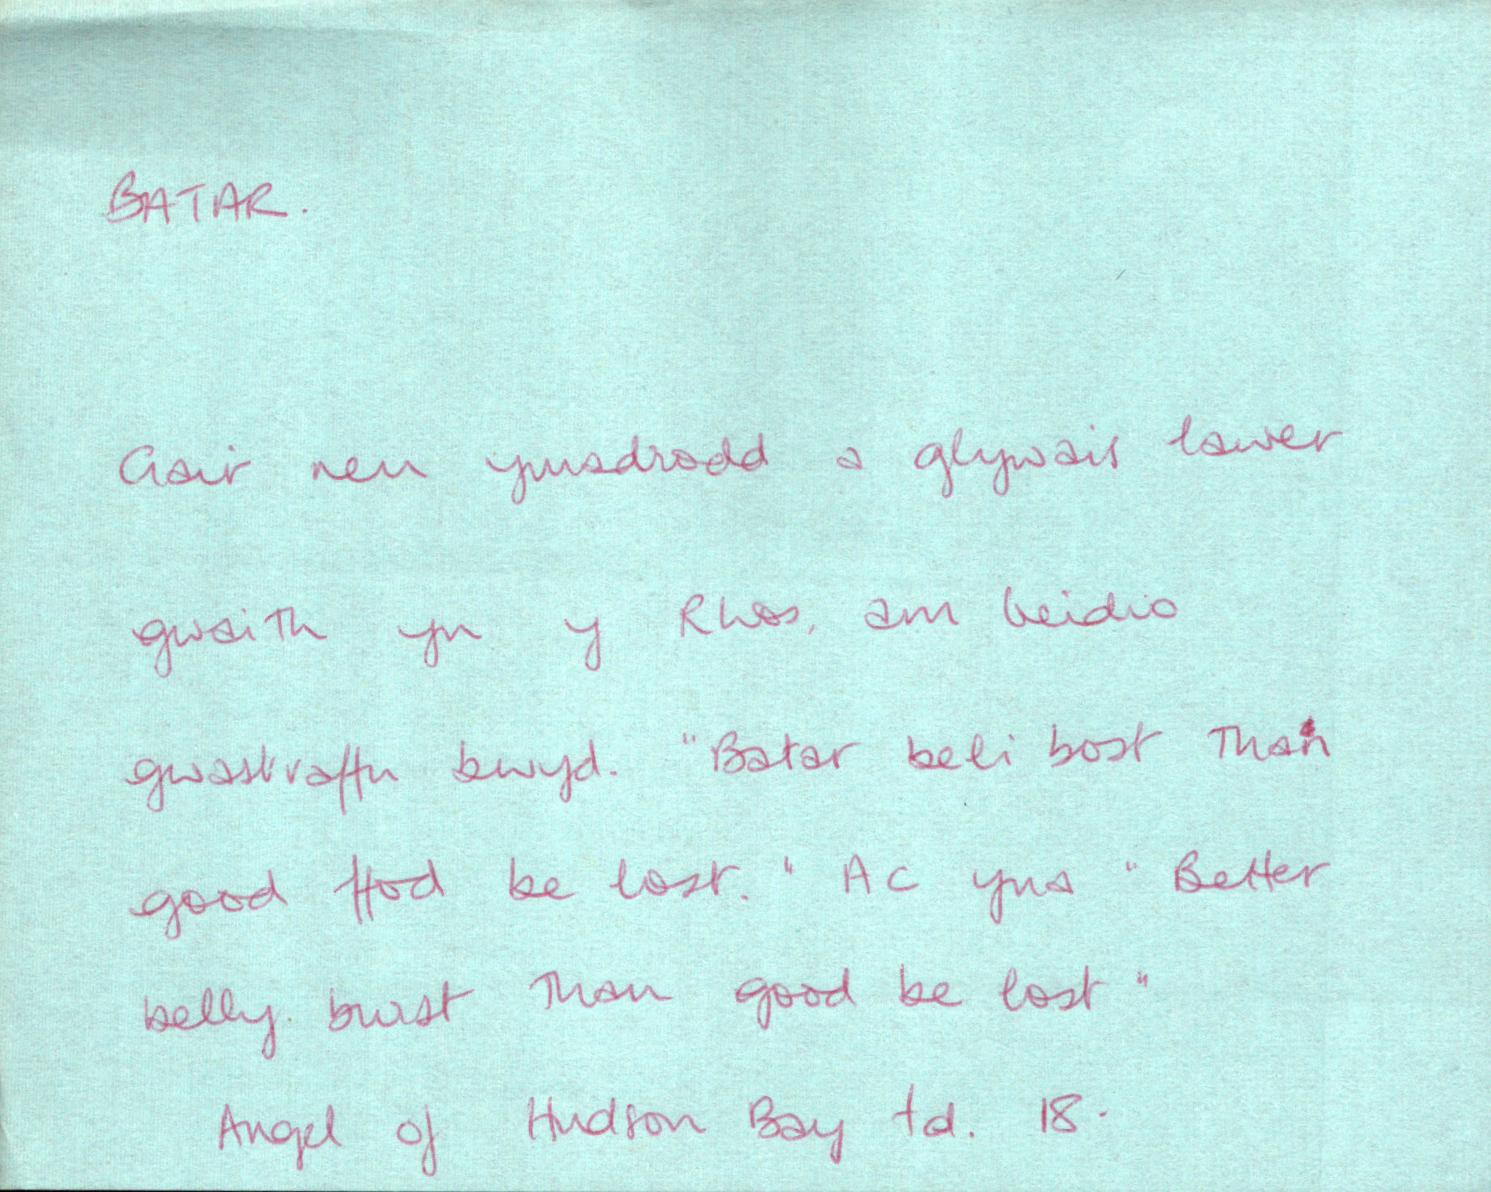 BATAR.
Gair neu ymadrodd a glywais lawer
gwaith yn y Rhos, am beidio
gwastraffu bwyd. "Batar beli bost than
good ffod be lost." Ac yna "Better
belly burst than good be lost"
Angel of Hudson Bay td. 18.